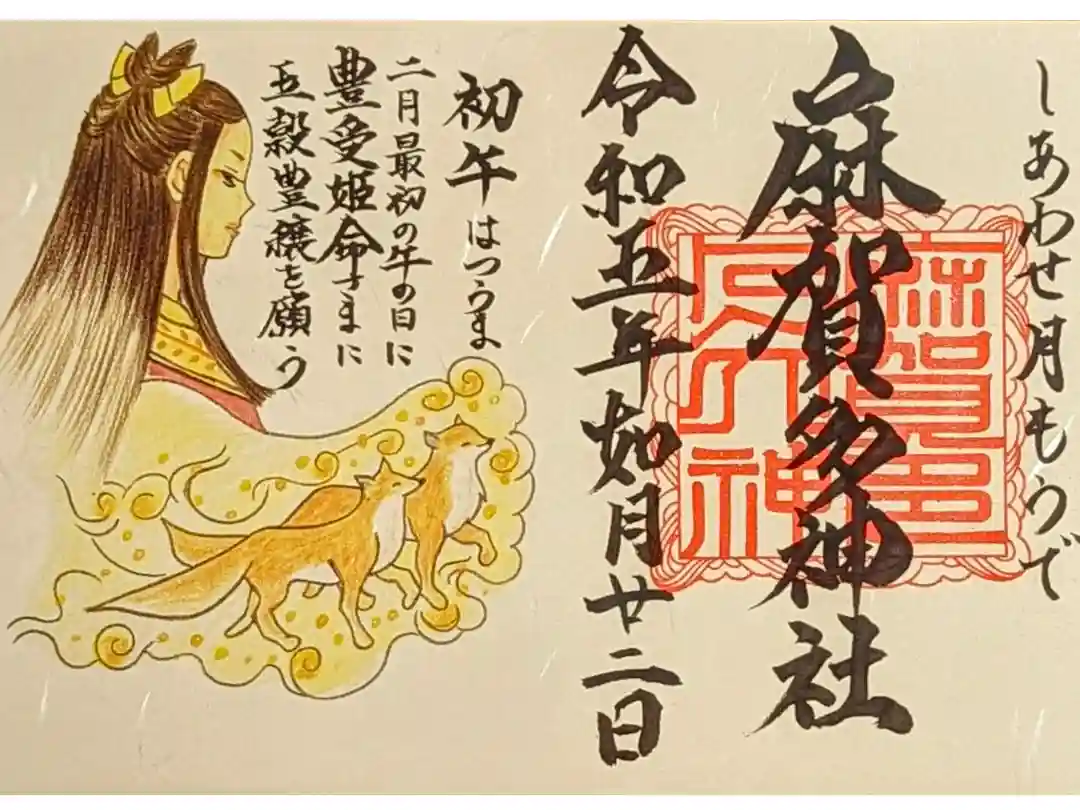 しあわせ月もうで
麻賀多神社
令和五年如月廿二日
初午はつうま
二月最初の午の日に
豊受姫命さまに
五穀豊穣を願う